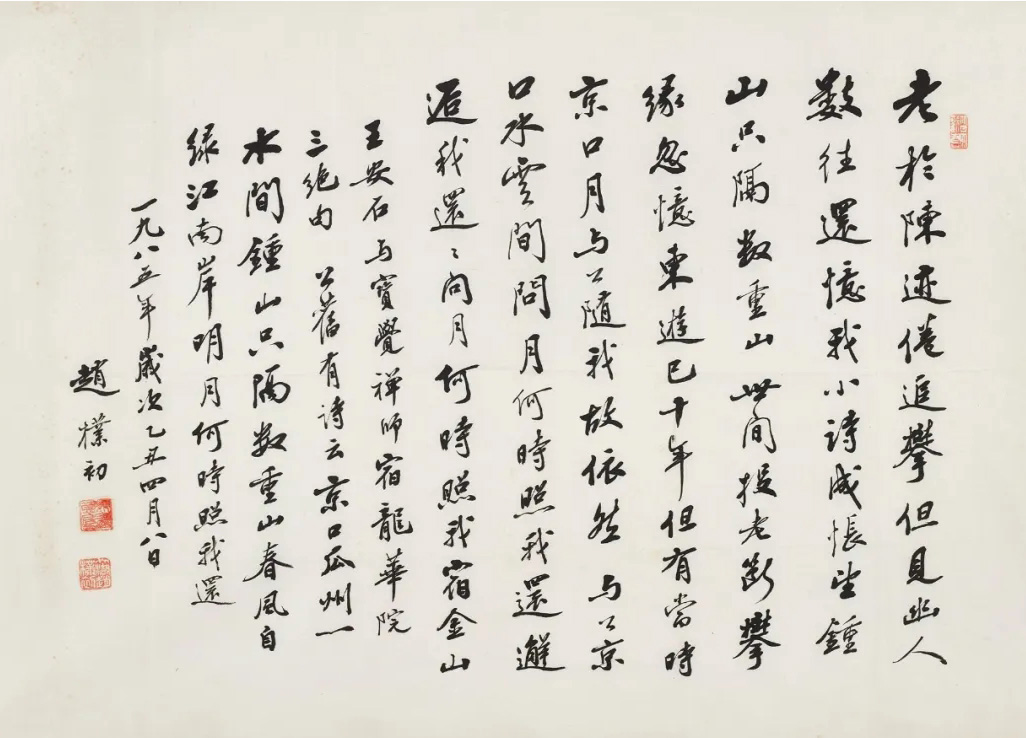 老於陳迹倦追攀但見幽人
數往還憶我小詩成悵望鍾
山只隔数重山 世间投老斷攀
緣忽憶東遊已十年但有當時
京口月与公隨我故依然 与公京
口水雲間問月何時照我還邂
逅我還〻問月何時照我宿金山
王安石与寶覺禅師宿龍華院
三絶句 公舊有詩云京口瓜州一
水間鍾山只隔数重山春風自
緑江南岸明月何時照我還
一九八五年歲次乙丑四月八日
趙樸初